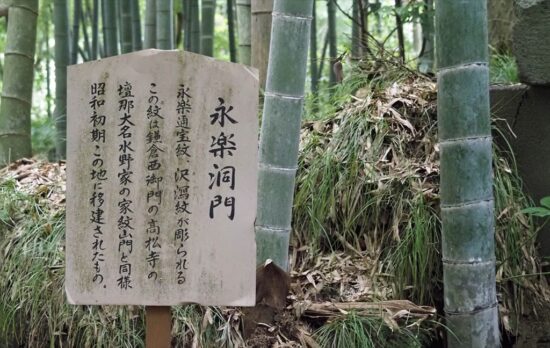 永楽洞門
永楽通宝紋、沢瀉紋が彫られる
この紋は鎌倉西御門の高松寺の
壇那大名水野家の家紋山門と同様
昭和初期この地に移建されたもの。